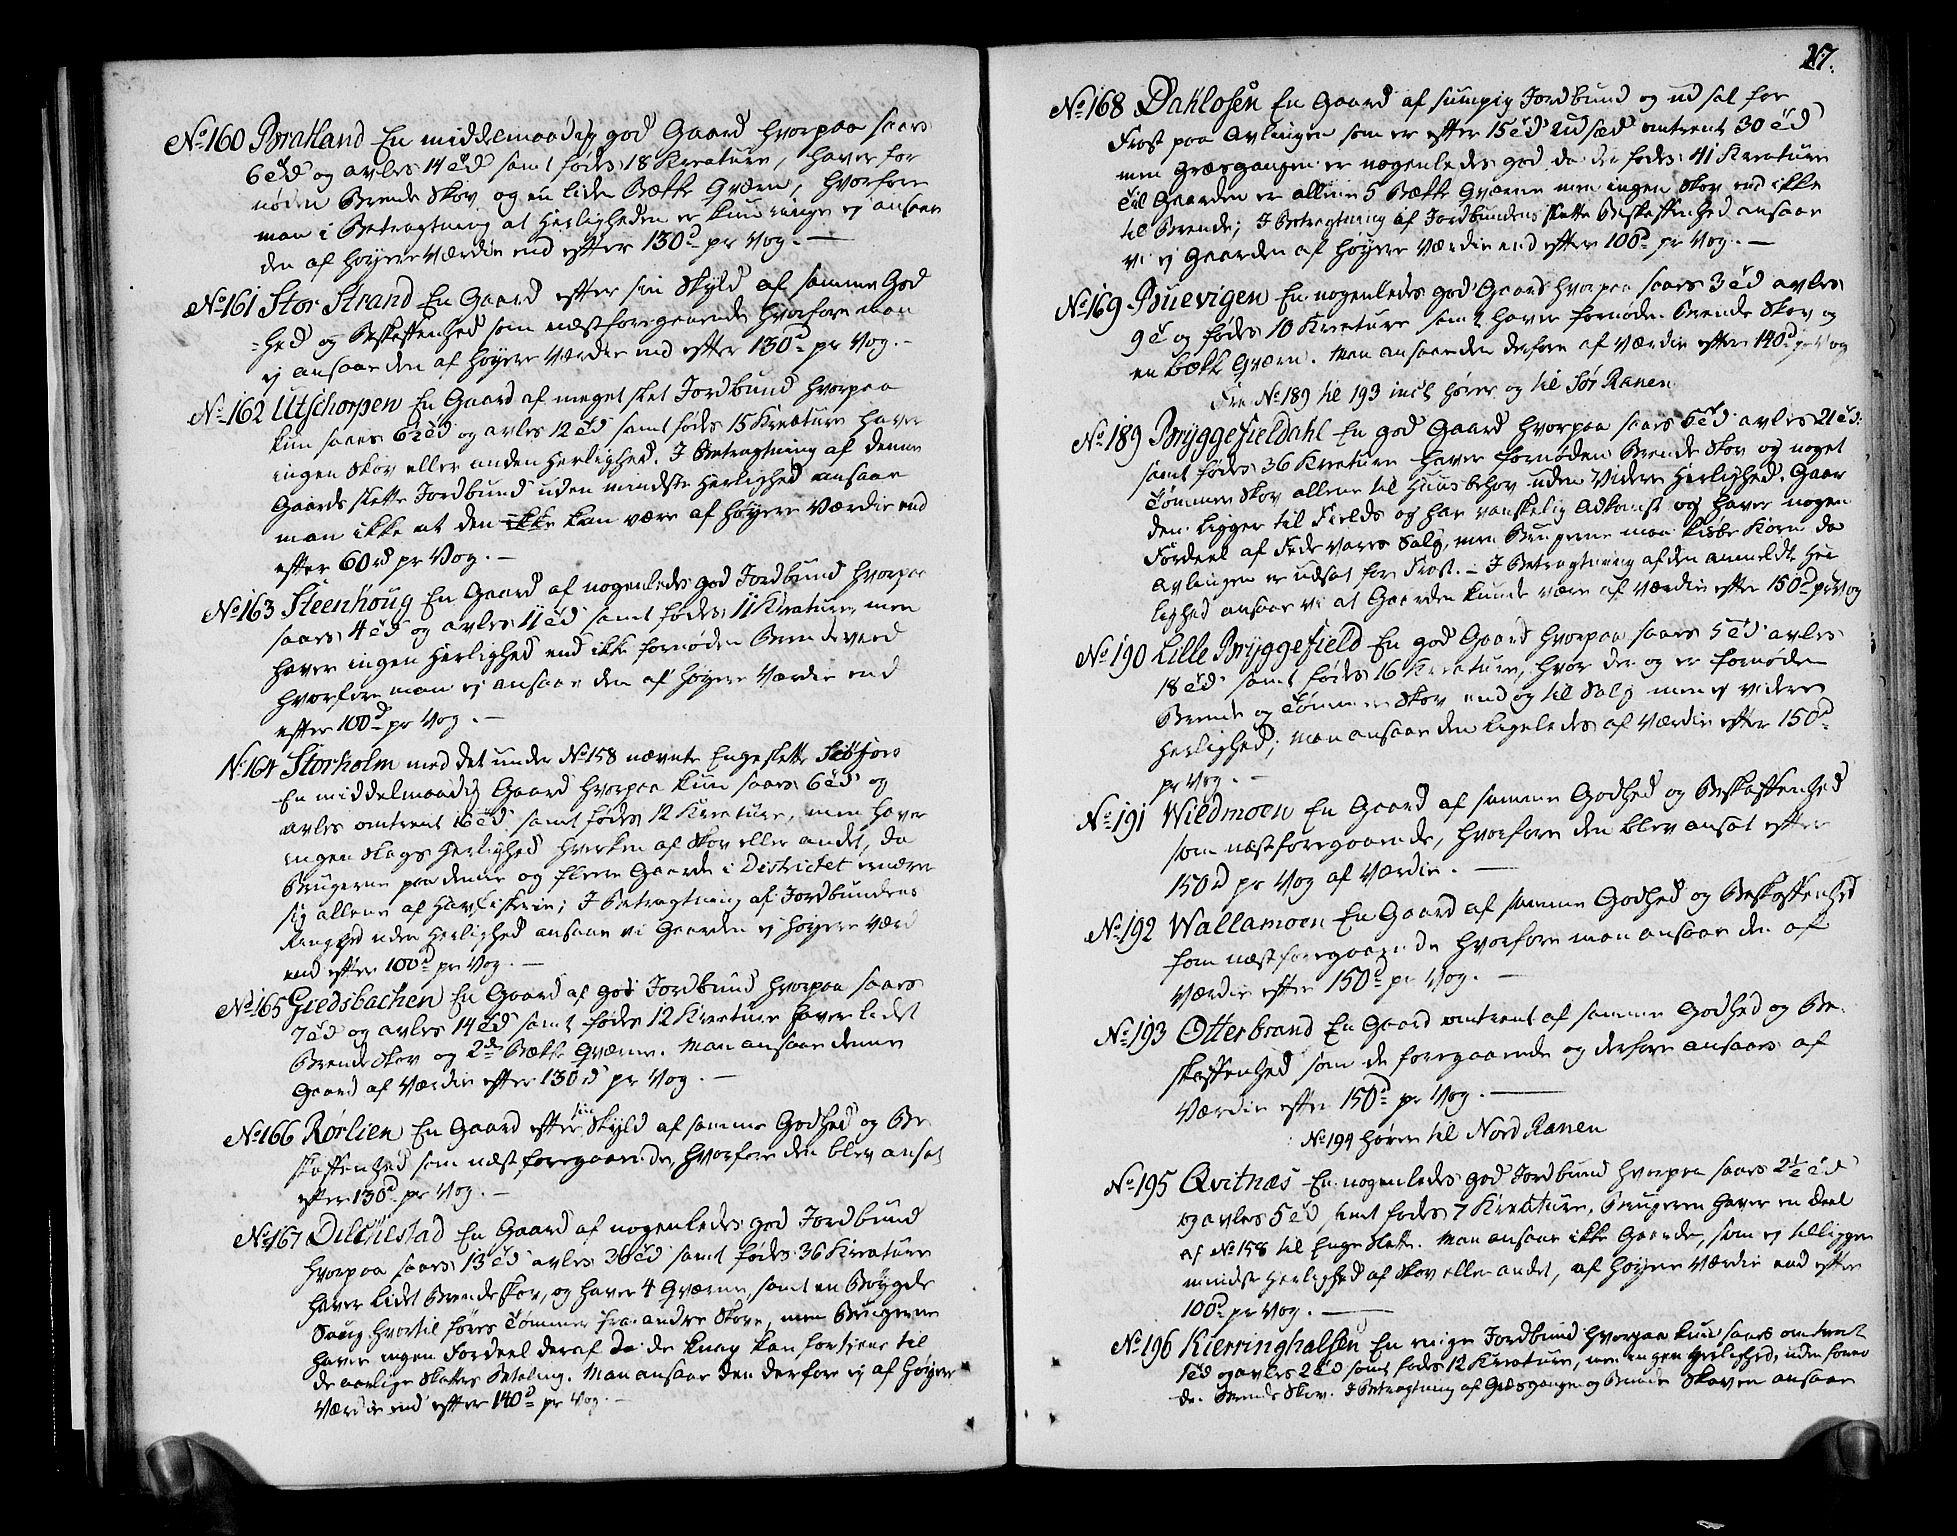 No 160 Bratland En middelmaadig god Gaard hvorpaa saaes
6 Td og avles 14 Td samt fødes 18 Kreature, haver for
nøden Brende Skov og en liden Bække Qværn, hvorfore
man i Betragtning at Herligheden er kun ringe ej ansaar
den af høyere Værdie end efter 130 d pr Vog. —
No 161 Stor Strand En Gaard efter sin Skyld af samme God
=hed og Beskaffenhed som næstforegaaende hvorfore man
ej ansaar den af høyere Værdie end efter 130 d pr Vog. -
No 162 Utschorpen En Gaard af meget slet Jordbund hvorpaa
kun saaes 6½ Td og avles 12 Td samt fødes 15 Kreature haver
ingen Skov eller anden Herlighed. I Betragtning af denne
Gaards slette Jordbund uden mindste Herlighed ansaar
man ikke at den ikke kan være af høyere Værdie end
efter 60 rd pr Vog. —
No 163 Steenhoug En Gaard af nogenledes god Jordbund hvorpaa
saaes 4 Td og avles 11 Td samt fødes 11 Kreature, men
haver ingen Herlighed end ikke fornøden Brendeveed
hvorfore man ej ansaar den af høyere Værdie end
efter 100 d pr Vog. —
No 164 Storholm med det under No 158 nævnte Engeslette
En middelmaadig Gaard hvorpaa kun saaes 6 Td og
avles omtrent 16 Td samt fødes 12 Kreature, men haver
ingen Slags Herlighed hverken af Skov eller andet, da
Brugerne paa denne og flere Gaarde i Districtet ernærer
sig allene af Hav fiskerie; I Betragtning af Jordbundens
Ringhed uden Herlighed ansaar vi Gaarden ej høyere værd
end efter 100 d pr Vog. —
No 165 Giedsbachen En Gaard af god Jordbund hvorpaa saaes
7 Td og avles 14 Td samt fødes 12 Kreature haver lidet
Brende Skov og 2de Bække Qværne. Man ansaar denne
Gaard af Værdie efter 130 rd pr Vog. —
No 166 Rörlien En Gaard efter sin Skyld af samme Godhed og Be
skaffenhed som næst foregaaende, hvorfore den blev ansat
efter 130 d pr Vog. —
No 167 Dilchestad En Gaard af nogenledes god Jordbund
hvorpaa saaes 13 Td avles 36 Td samt fødes 36 Kreature
haver lidet Brende Skov, og haver 4 Qværne, samt en Bøygde
Saug hvortil føres Tømmer fra andre Skove, men Brugerne
haver ingen Fordeel deraf da de knap kan fortjene til
de aarlige Skatters Betaling. Man ansaar den derfore ej af høyere
Værdie end efter 140 d pr Vog. —
17.
No 168 Dahlosen En Gaard af sumpig Jordbund og ud sat for
Frost paa Avlingen som er efter 15 Td Udsæd omtrent 30 Td
men græsgangen er nogenledes god da der fødes 41 Kreature
Til Gaarden er allene 5 Bække Qværne men ingen Skov end ikke
til Brende; I Betragtning af Jordbundens slette Beskaffenhed ansaar
vi ej Gaarden af høyere Værdie end efter 100 d pr Vog. —
No 169 Buevigen En nogenledes god Gaard hvorpaa saaes 3 Td avles
9 T og fødes 10 Kreature samt haver fornøden Brende Skov og
en bække Qværn. Man ansaar den derfore af Værdie efter 140 d pr Vog
Fra No 189 til 193 incl hører og til Sør Ranen
No 189 Bryggefieldahl En god Gaard hvorpaa saaes 6 Td avles 21 Td
samt fødes 36 Kreature haver fornøden Brende Skov og noget
Tømmer Skov allene til Huusbehov uden Videre Herlighed. Gaar
den ligger til Fields og har vanskelig Adkomst og haver nogen
Fordeel af Fede vares Salg, men Brugerne maa kiøbe Korn da
avlingen er udsat for Frost. — I Betragtning af den anmeldte Her
lighed ansaar vi at Gaarden kunde være af Værdie efter 150 d pr Vog
No 190 Lille Bryggefield En god Gaard hvorpaa saaes 5 Td avles
18 Td samt fødes 16 Kreature, hvor der og er fornøden
Brende og Tømmer Skov end og til Salg men ej videre
Herlighed; Man ansaar den ligeledes af Værdie efter 150 d
pr Vog. —
No 191 Wildmoen En Gaard af samme Godhed og Beskaffenhed
som næst foregaaende, hvorfore den blev ansat efter
150 d pr Vog af Værdie. —
No 192 Wallamoen En Gaard af samme Godhed og Beskaffenhed
som næst foregaaende hvorfore man ansaar den af
Værdie efter 150 d pr Vog. —
No 193 Otterbrand En Gaard omtrent af samme Godhed og Be-
skaffenhed som de foregaaende og derfore ansaaes af
Værdie efter 150 d pr Vog. —
No 194 hører til Nord Ranen
No 195 Qvitnæs En nogenledes god Jordbund hvorpaa saaes 2½ Td
og avles 5 Td samt fødes 7 Kreature, Brugeren haver en Deel
af No 158 til Enge Slætte. Man ansaar ikke Gaarden, som ej tilligger
mindste Herlighed af Skov eller andet, af høyere Værdie end efter
100 d pr Vog. —
No 196 Kierringhalsen En ringe Jordbund hvorpaa kun saaes omtrent
1 Td og avles 2 Td samt fødes 12 Kreature, men ingen Herlighed, uden fornø
den Brende Skov. I Betragtning af Græsgangen og Brende Skoven ansaar